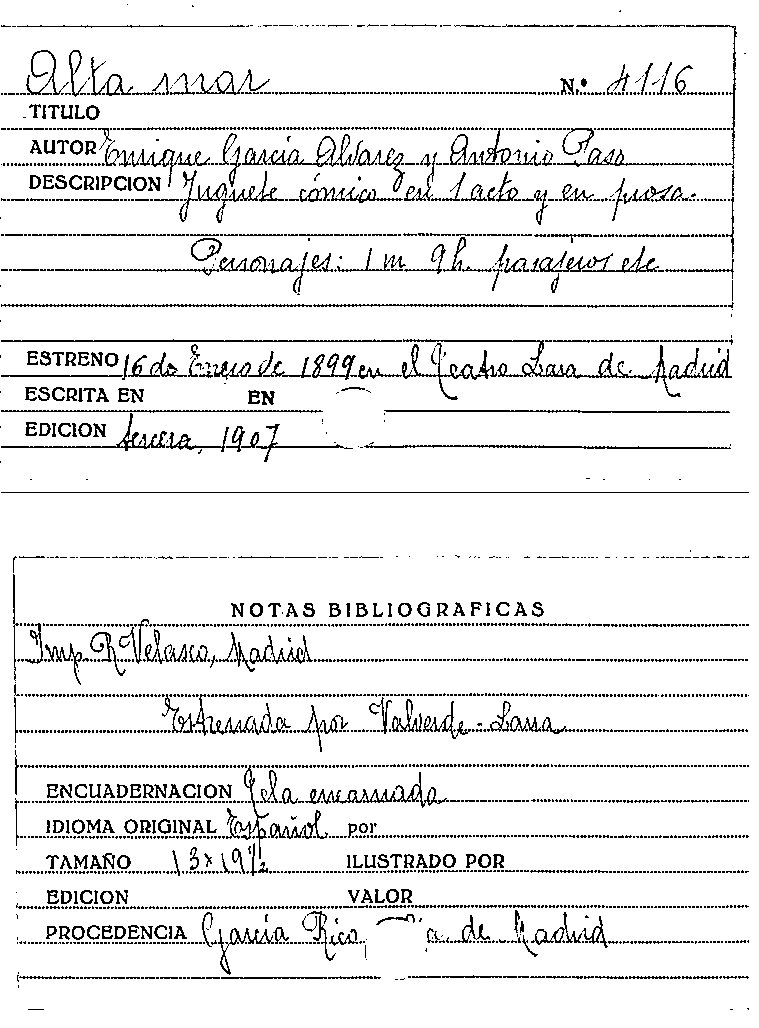 Alta mar N.º 4116
TITULO
AUTOR Enrique García Alvarez y Antonio Paso
DESCRIPCION Juguete cómico en 1 acto y en prosa.
Personajes: 1 m 9 h. pasajeros etc
ESTRENO 16 de Enero de 1899 en el Teatro Lara de Madrid
ESCRITA EN EN
EDICION tercera, 1907
NOTAS BIBLIOGRAFICAS
Imp. R Velasco, Madrid
Estrenada por Valverde - Larra
ENCUADERNACION Tela encarnada
IDIOMA ORIGINAL Español por
TAMAÑO 13 x 19 1/2 ILUSTRADO POR
EDICION VALOR
PROCEDENCIA García Rico, de Madrid